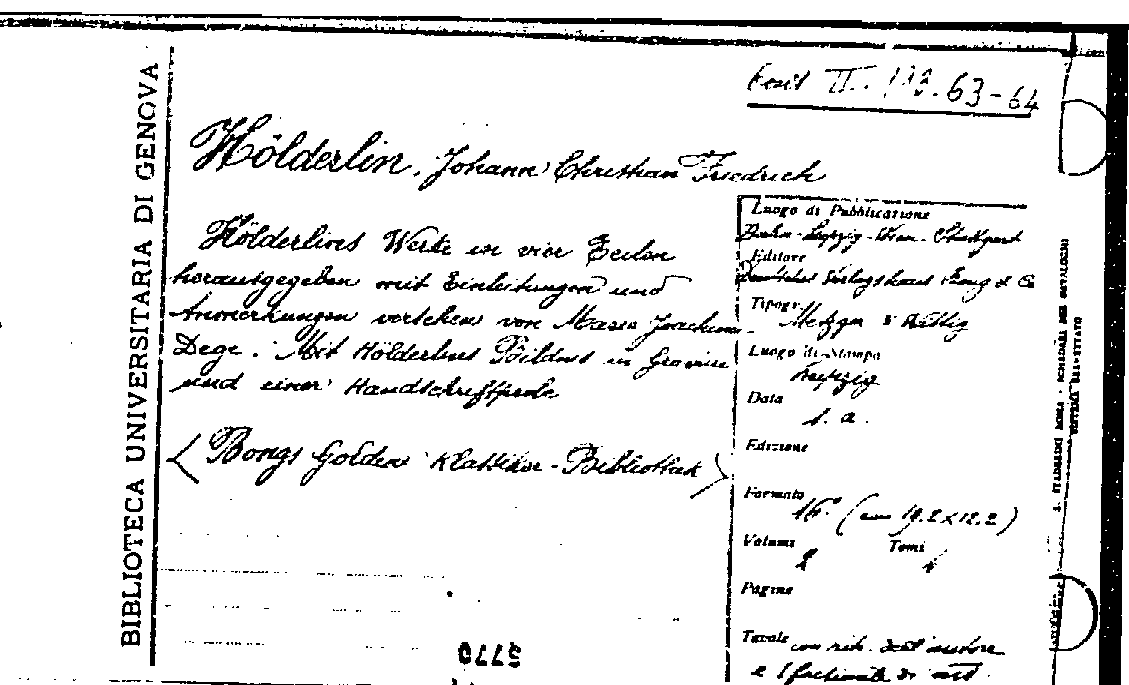 BIBLIOTECA UNIVERSITARIA DI GENOVA
II. 63-64
Hölderlin, Johann Christian Friedrich
Hölderlins Werke in vier Teilen
herausgegeben mit Einleitungen und
Anmerkungen versehen von Marie Joachimi-
Dege. Mit Hölderlins Bildnis in Gravüre
und einer Handschriftprobe
<Bongs Goldene Klassiker-Bibliothek>
Luogo di Pubblicazione
Berlin-Leipzig-Wien-Stuttgart
Editore
Deutsches Verlagshaus Bong & Co
Tipogr.
Metzger & Wittig
Luogo di Stampa
Leipzig
Data
s. a.
Edizione
Formato
16° (cm 19.2×12.2)
Volumi Tomi
2 4
Pagine
Tavole con ritr. dell'autore
e 1 facsimile di
5770